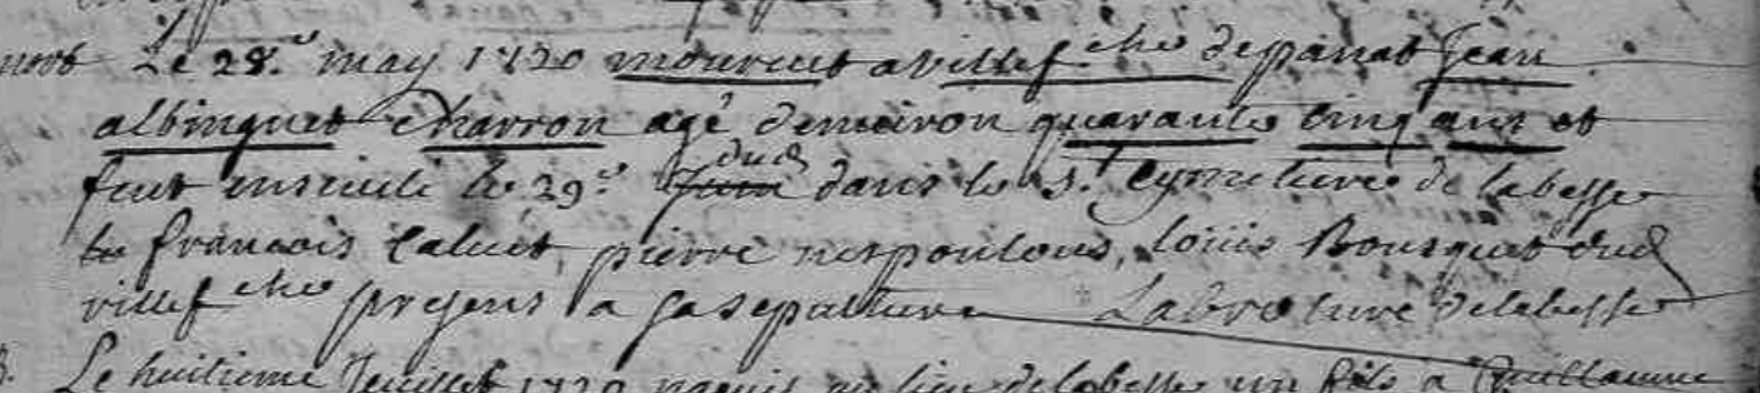 mort Le 28.e may 1720 mourut a villef.che depanat Jean
albinquet charron agé denviron quarante cinq ans et
feut enseveli le 29.e Juin dud dans le St. Cymetiere de labesse
françois Caluet, pierre nespoulous, Loüis Bousquet dud
villef.che presens a sa sepulture Labro curé delabesse
Le huitieme Jeuillet 1720 naquit au lieu delabesse un fils a Guillaume